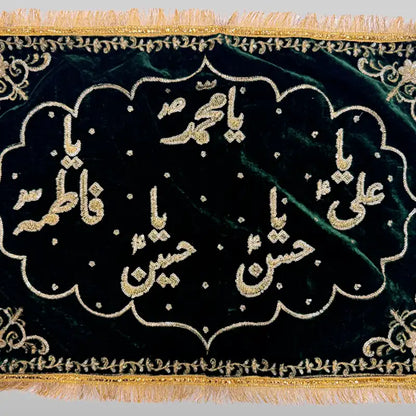 یا محمد ص
یا علی ع
یا فاطمه س
یا حسن ع
یا حسین ع